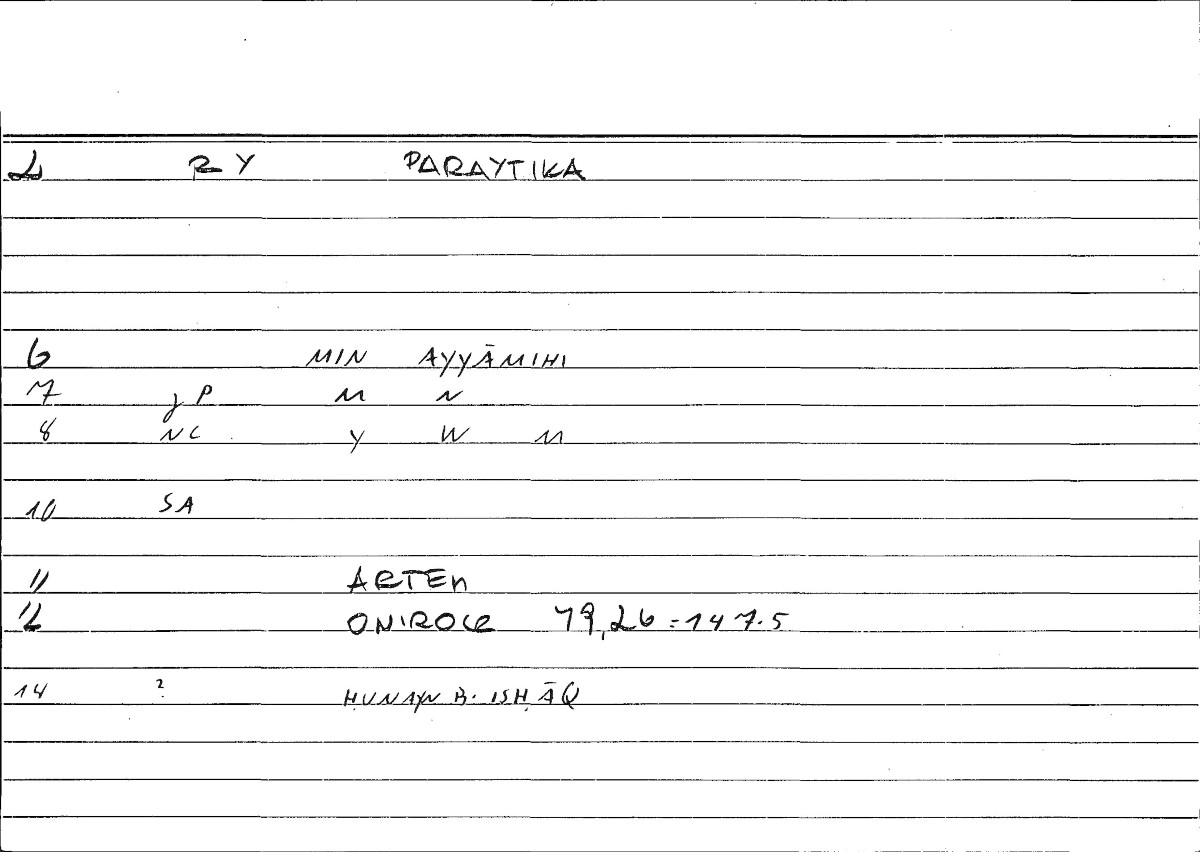 2 RY PARAYTIKA
6 MIN AYYĀMIHI
7 γP M N
8 NC Y W M
10 SA
11 ARTEM
12 ONIROCR 79,26=147.5
14 ? ḤUNAYN B. ISḤĀQ